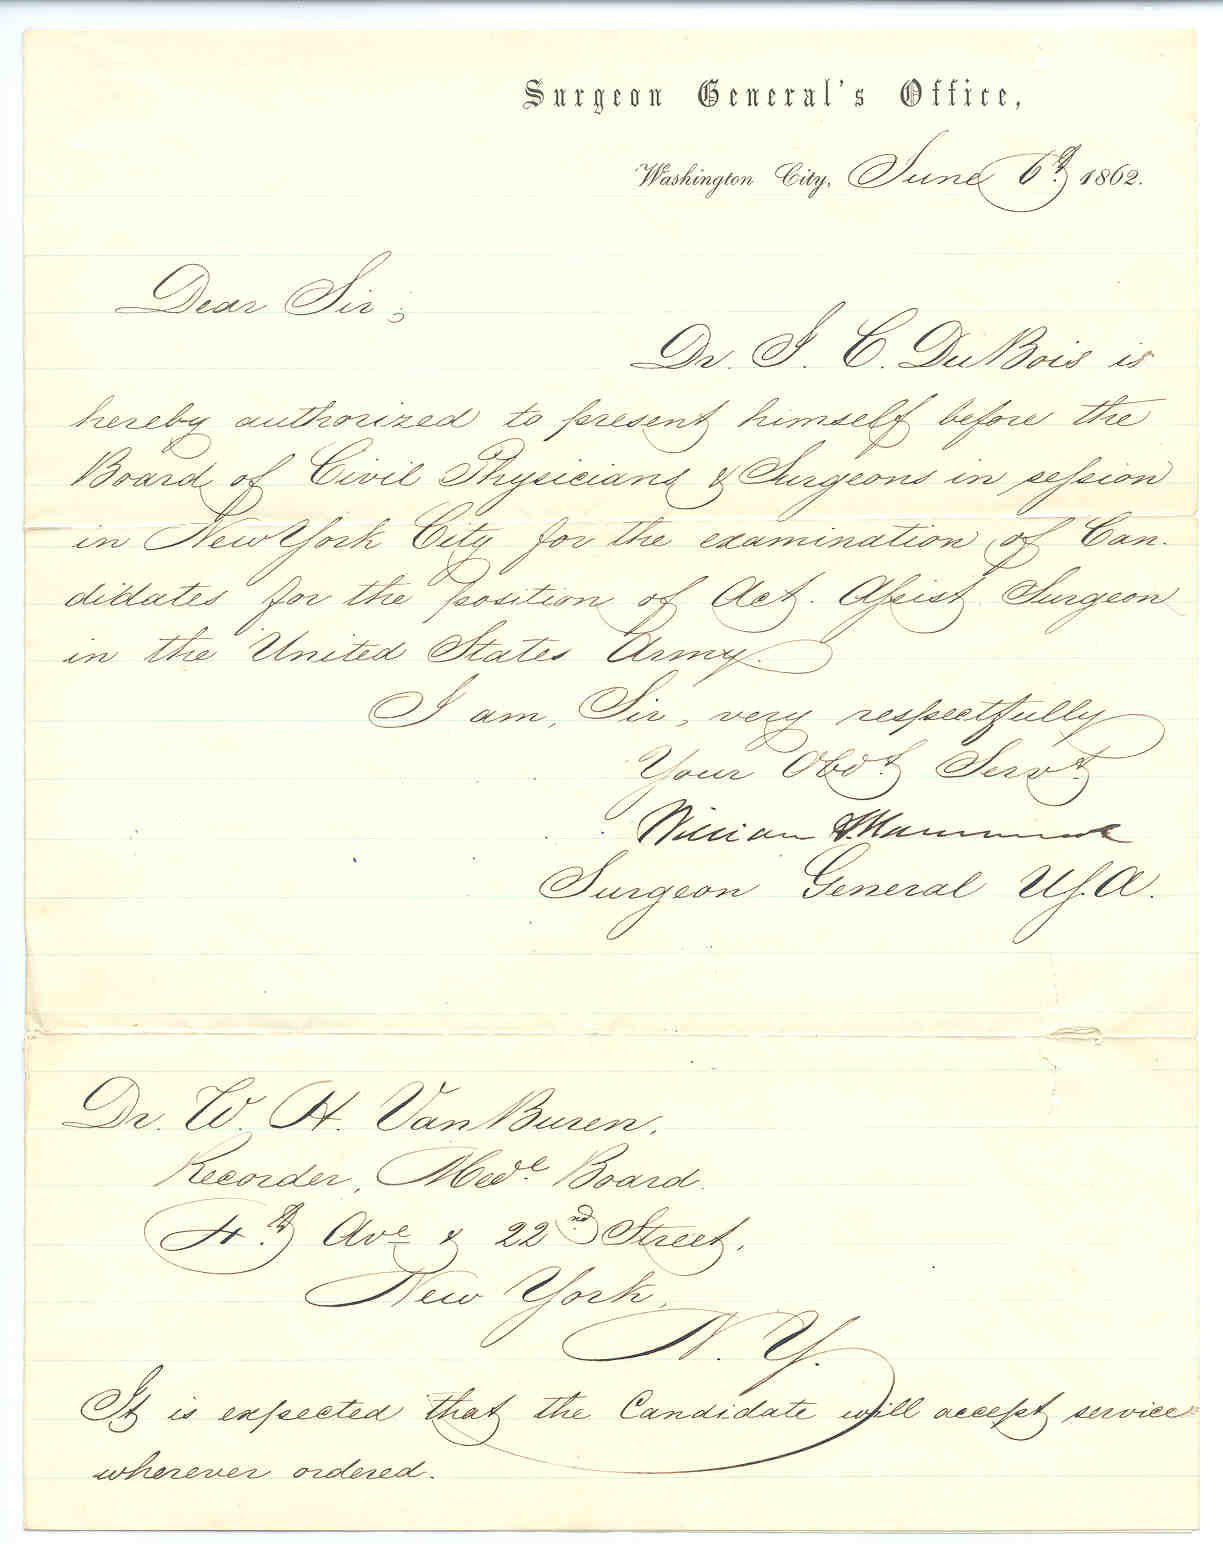 Surgeon General's Office,
Washington City, June 6th 1862.
Dear Sir;
Dr. I. C. DuBois is
hereby authorized to present himself before the
Board of Civil Physicians & Surgeons in session
in New York City for the examination of Can-
didates for the position of Act. Assist. Surgeon
in the United States Army.
I am, Sir, very respectfully
Your Obdt. Servt.
William A. Hammond
Surgeon General U.S.A.
Dr. W. H. Van Buren.
Recorder, Medl. Board.
4th Ave & 22nd Street,
New York,
N. Y.
It is expected that the Candidate will accept service
wherever ordered.